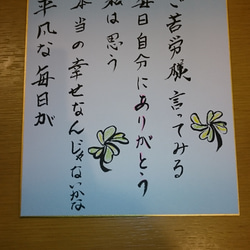 平凡な毎日が
本当の幸せなんじゃないかな
私は思う
毎日自分にありがとう
ご苦労様 言ってみる